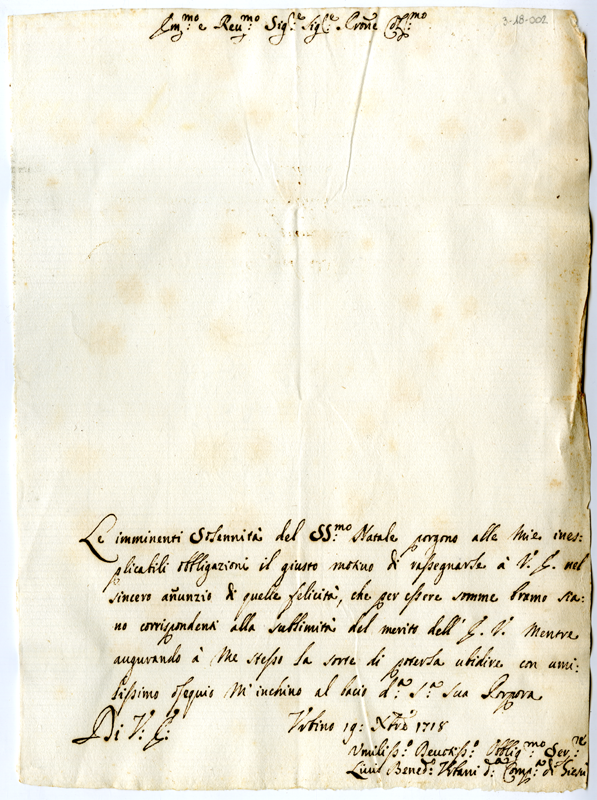 3-18-002
Em.mo e Reu.mo Sig.r Sig.r Prone Col.mo
Le imminenti Solennità del SS.mo Natale porgono alle mie ines=
plicabili obbligazioni il giusto motiuo di rassegnarle à V. E. nel
sincero añunzio di quelle felicità, che per essere somme bramo sia=
no corrispondenti alla sublimità del merito dell' E. V. Mentre
augurando à Me stesso la sorte di poterla ubidire con umi=
lissimo ossequio m'inchino al bacio d.a S.a Sua Porpora
Di V. E.
Urbino 19: Xbre 1718
Umiliss.o Deuotiss.o Obblig.mo Ser.re
Bened.o Urbani d.a Comp.a di Giesù